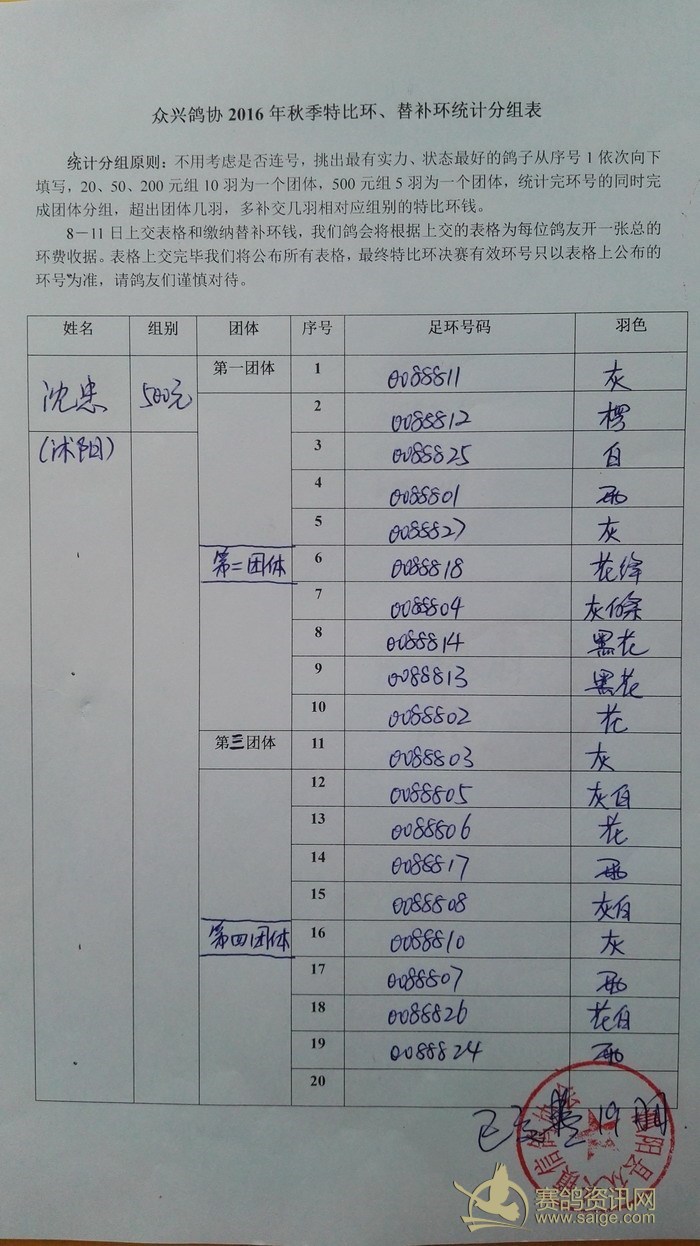 众兴鸽协 2016 年秋季特比环、替补环统计分组表
统计分组原则：不用考虑是否连号，挑出最有实力、状态最好的鸽子从序号 1 依次向下
填写，20、50、200 元组 10 羽为一个团体，500 元组 5 羽为一个团体，统计完环号的同时完
成团体分组，超出团体几羽，多补交几羽相对应组别的特比环钱。
8－11 日上交表格和缴纳替补环钱，我们鸽会将根据上交的表格为每位鸽友开一张总的
环费收据。表格上交完毕我们将公布所有表格，最终特比环决赛有效环号只以表格上公布的
环号为准，请鸽友们谨慎对待。
姓名 组别 团体 序号 足环号码 羽色
沈忠 500元 第一团体 1 0088811 灰
2 0088812 楞
(沭阳) 3 0088825 白
4 0088801 雨
5 0088827 灰
第二团体 6 0088818 花绛
7 0088804 灰白条
8 0088814 黑花
9 0088813 黑花
10 0088802 花
第三团体 11 0088803 灰
12 0088805 灰白
13 0088806 花
14 0088817 雨
15 0088808 灰白
第四团体 16 0088810 灰
17 0088807 雨
18 0088826 花白
19 0088824 雨
20
已交 19
赛鸽资讯网
www.saige.com